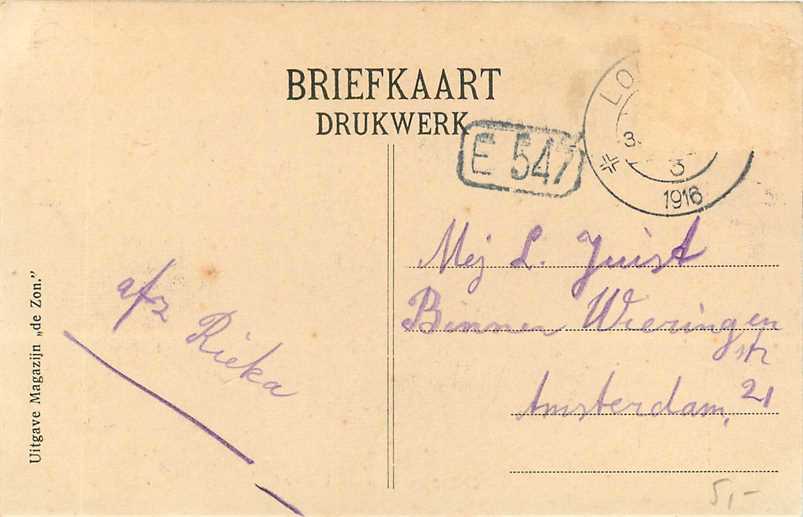 BRIEFKAART
DRUKWERK
E 547
LO
3
3
1916
Mej L. Juist
Binnen Wieringen
str
21
Amsterdam,
afz Rieka
Uitgave Magazijn „de Zon.”
5,-